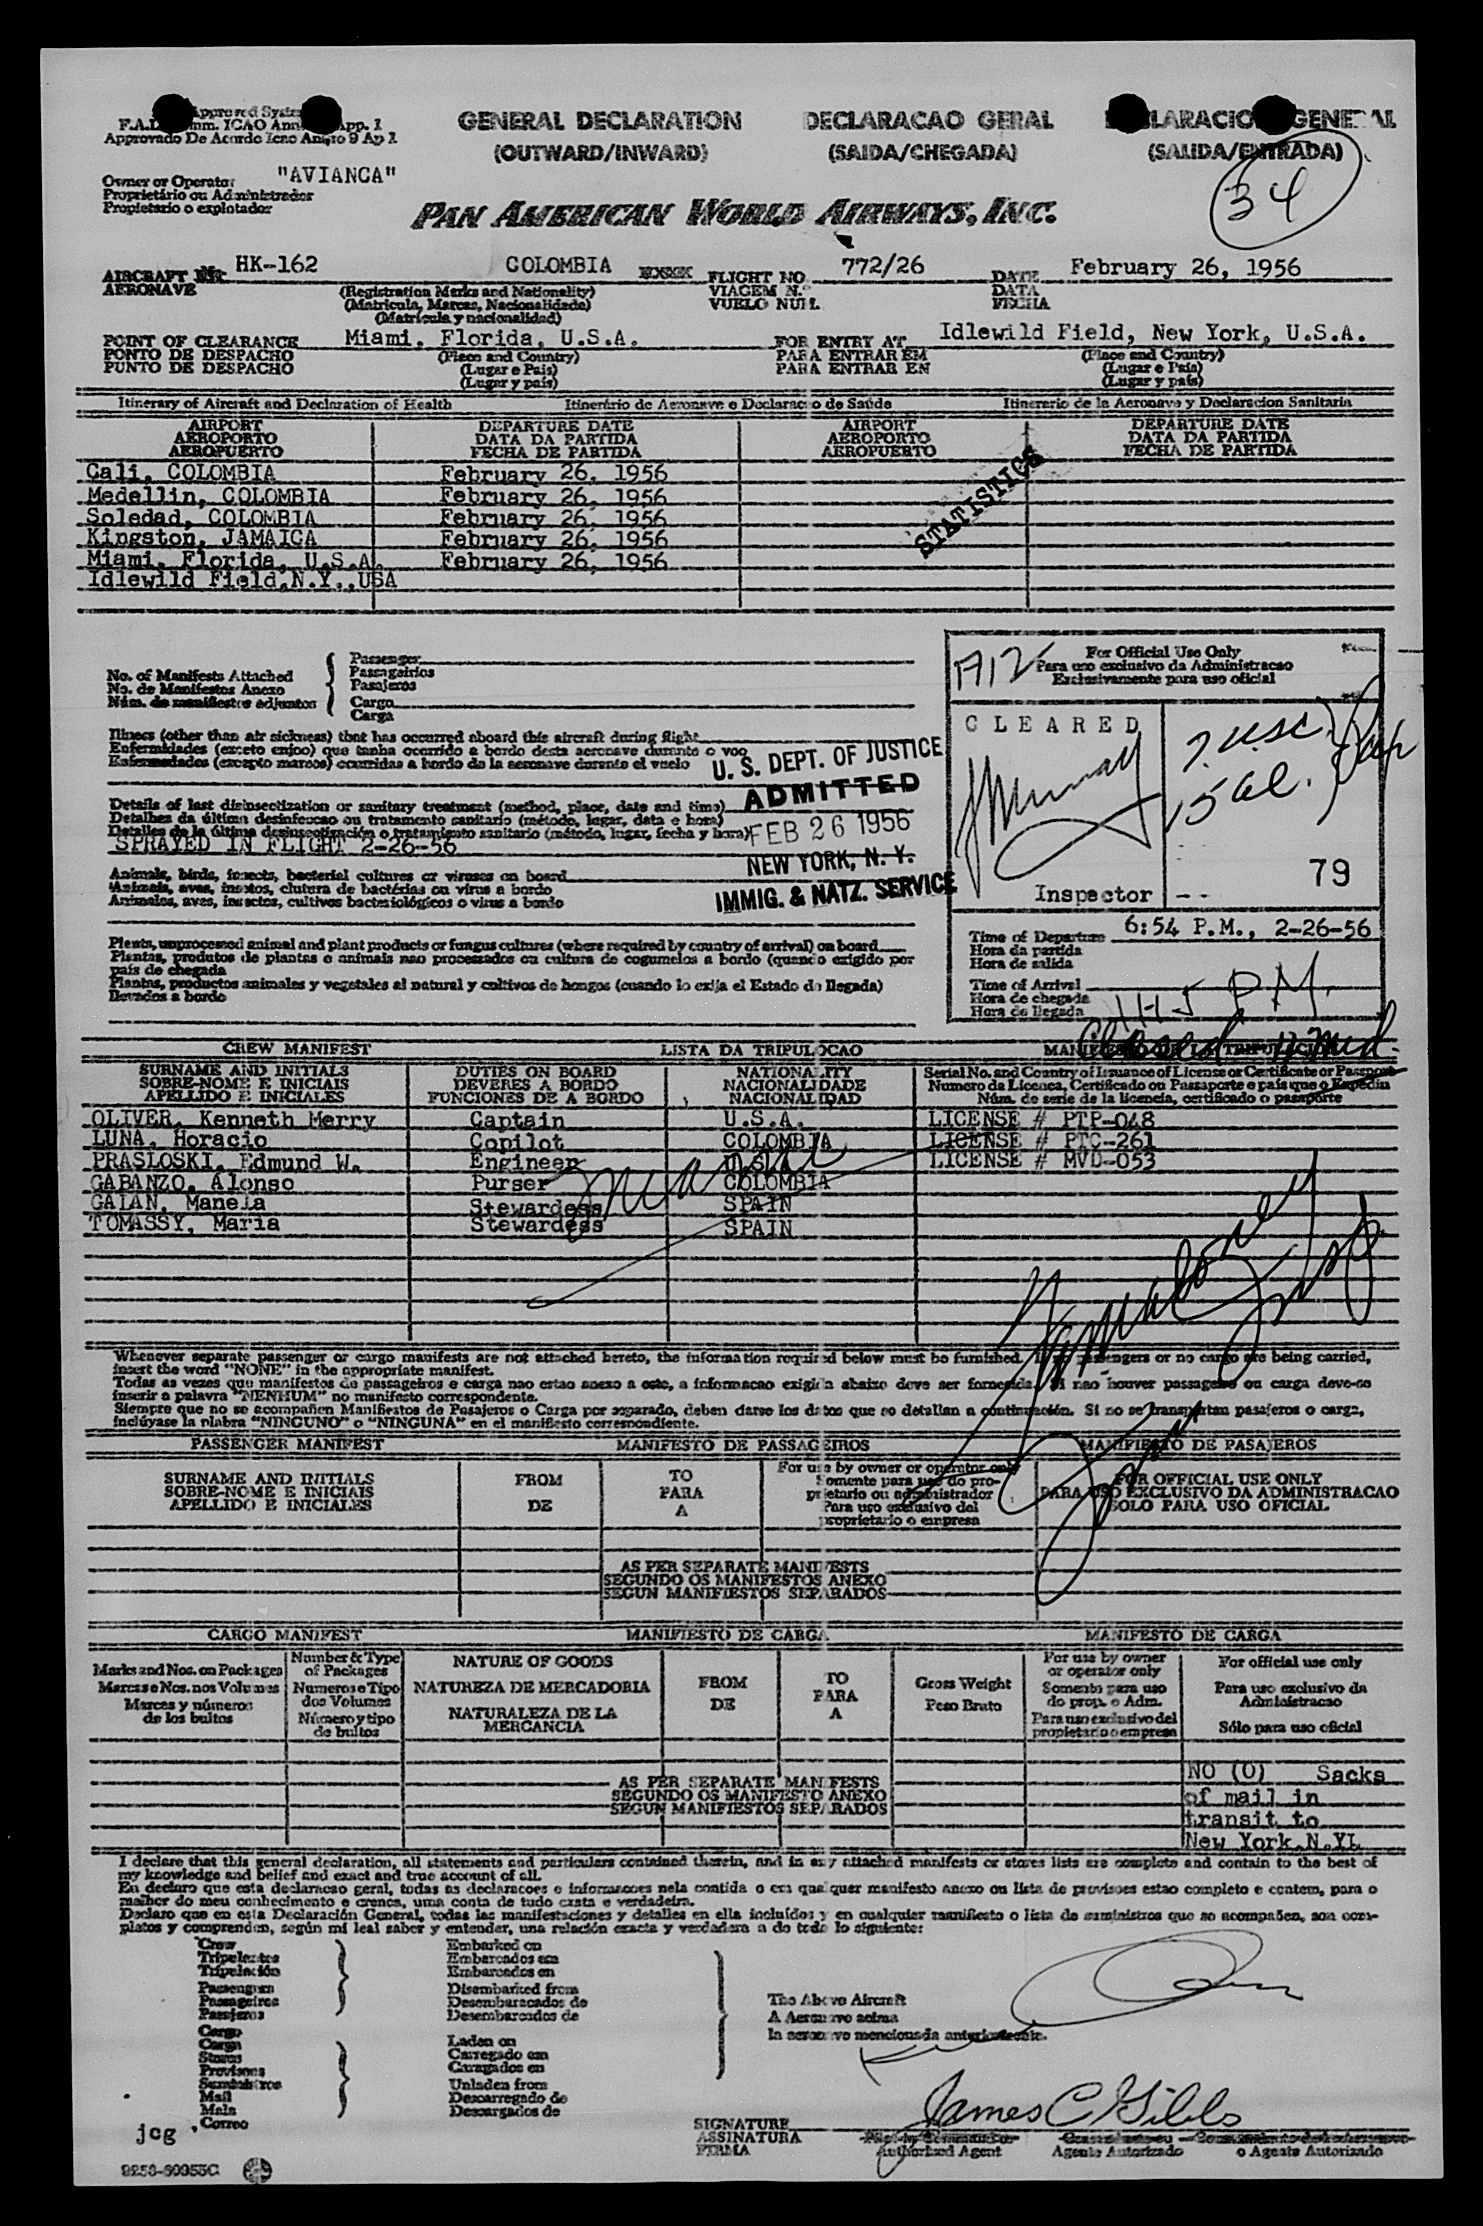 Approved
F.A.L. Comm. ICAO App. 1
Approvado De Acordo Icao Anexo 9 Ap 1
GENERAL DECLARATION
(OUTWARD/INWARD)
DECLARACAO GERAL
(SAIDA/CHEGADA)
GENERAL
(SALIDA/ENTRADA)
34
Owner or Operator "AVIANCA"
Proprietário ou Administrador
Propietario o explotador
PAN AMERICAN WORLD AIRWAYS, INC.
AIRCRAFT HK-162 COLOMBIA FLIGHT NO. 772/26 DATE February 26, 1956
AERONAVE (Registration Marks and Nationality) VIAGEM N.º DATA
(Matricula, Marcas, Nacionalidade) VUELO NUM. FECHA
(Matricula y nacionalidad)
POINT OF CLEARANCE Miami, Florida, U.S.A. FOR ENTRY AT Idlewild Field, New York, U.S.A.
PONTO DE DESPACHO (Place and Country) PARA ENTRAR EM (Place and Country)
PUNTO DE DESPACHO (Lugar e Pais) PARA ENTRAR EN (Lugar e Pais)
(Lugar y país) (Lugar y país)
Itinerary of Aircraft and Declaration of Health Itinerário de Aeronave e Declaracao de Saúde Itinerario de la Aeronave y Declaracion Sanitaria
AIRPORT DEPARTURE DATE AIRPORT DEPARTURE DATE
AEROPORTO DATA DA PARTIDA AEROPORTO DATA DA PARTIDA
AEROPUERTO FECHA DE PARTIDA AEROPUERTO FECHA DE PARTIDA
Cali, COLOMBIA February 26, 1956
Medellin, COLOMBIA February 26, 1956
Soledad, COLOMBIA February 26, 1956
Kingston, JAMAICA February 26, 1956
Miami, Florida, U.S.A. February 26, 1956
Idlewild Field,N.Y.,USA
STATISTICS
No. of Manifests Attached
No. de Manifestos Anexo
Núm. de manifiestos adjuntos
Passenger
Passageirios
Pasajeros
Cargo
Carga
For Official Use Only
Para uso exclusivo da Administracao
Exclusivamente para uso oficial
CLEARED
Inspector
7 USC.
15 al.
79
Illness (other than air sickness) that has occurred aboard this aircraft during flight
Enfermidades (exceto enjoo) que tenha ocorrido a bordo desta aeronave durante o voo
Enfermedades (excepto mareos) ocurridas a bordo de la aeronave durante el vuelo
U. S. DEPT. OF JUSTICE
ADMITTED
FEB 26 1956
NEW YORK, N. Y.
IMMIG. & NATZ. SERVICE
Details of last disinsectization or sanitary treatment (method, place, date and time)
Detalhes da última desinfeccao ou tratamento sanitario (método, lugar, data e hora)
Detalles de la última desinsectización o tratamiento sanitario (método, lugar, fecha y hora)
SPRAYED IN FLIGHT 2-26-56
Animals, birds, insects, bacterial cultures or viruses on board
Animais, aves, insetos, clutura de bactérias ou virus a bordo
Animales, aves, insectos, cultivos bacteriológicos o virus a bordo
Plants, unprocessed animal and plant products or fungus cultures (where required by country of arrival) on board
Plantas, produtos de plantas e animais nao processados ou cultura de cogumelos a bordo (quando exigido por
país de chegada
Plantas, productos animales y vegetales al natural y cultivos de hongos (cuando lo exija el Estado de llegada)
llevados a bordo
Time of Departure 6:54 P.M., 2-26-56
Hora da partida
Hora de salida
Time of Arrival
Hora de chegada
Hora de llegada
CREW MANIFEST LISTA DA TRIPULOCAO
SURNAME AND INITIALS DUTIES ON BOARD NATIONALITY Serial No. and Country of Issuance of License or Certificate or Passport
SOBRE-NOME E INICIAIS DEVERES A BORDO NACIONALIDADE Numero da Licenca, Certificado ou Passaporte e pais que o Expediu
APELLIDO E INICIALES FUNCIONES DE A BORDO NACIONALIDAD Núm. de serie de la licencia, certificado o pasaporte
OLIVER, Kenneth Merry Captain U.S.A. LICENSE # PTP-048
LUNA, Horacio Copilot COLOMBIA LICENSE # PTC-261
PRASLOSKI, Edmund W. Engineer LICENSE # MVD-053
GABANZO, Alonso Purser COLOMBIA
GALAN, Manela Stewardess SPAIN
TOMASSY, Maria Stewardess SPAIN
Whenever separate passenger or cargo manifests are not attached hereto, the information required below must be furnished. If no passengers or no cargo are being carried,
insert the word "NONE" in the appropriate manifest.
Todas as vezes que manifestos de passageiros e carga nao estao anexo a este, a informacao exigida abaixo deve ser fornecida. Si nao houver passageiro ou carga deve-se
inserir a palavra "NENHUM" no manifesto correspondente.
Siempre que no se acompañen Manifiestos de Pasajeros o Carga por separado, deben darse los datos que se detallan a continuación. Si no se transportan pasajeros o carga,
inclúyase la plabra "NINGUNO" o "NINGUNA" en el manifiesto correspondiente.
PASSENGER MANIFEST MANIFESTO DE PASSAGEIROS MANIFIESTO DE PASAJEROS
SURNAME AND INITIALS
SOBRE-NOME E INICIAIS
APELLIDO E INICIALES
FROM
DE
TO
PARA
A
For use by owner or operator only
Somente para uso do pro-
prietario ou administrador
Para uso exclusivo del
proprietario o empresa
FOR OFFICIAL USE ONLY
PARA USO EXCLUSIVO DA ADMINISTRACAO
SOLO PARA USO OFICIAL
AS PER SEPARATE MANIFESTS
SEGUNDO OS MANIFESTOS ANEXO
SEGUN MANIFIESTOS SEPARADOS
CARGO MANIFEST MANIFIESTO DE CARGA MANIFESTO DE CARGA
Marks and Nos. on Packages
Marcas e Nos. nos Volumes
Marcas y números
de los bultos
Number & Type
of Packages
Numeros e Tipo
dos Volumes
Número y tipo
de bultos
NATURE OF GOODS
NATUREZA DE MERCADORIA
NATURALEZA DE LA
MERCANCIA
FROM
DE
TO
PARA
A
Gross Weight
Peso Bruto
For use by owner
or operator only
Somento para uso
do prop. o Adm.
Para uso exclusivo del
propietario o empresa
For official use only
Para uso exclusivo da
Administracao
Sólo para uso oficial
AS PER SEPARATE MANIFESTS
SEGUNDO OS MANIFESTO ANEXO
SEGUN MANIFIESTOS SEPARADOS
NO (0) Sacks
of mail in
transit to
New York,N.Y.
I declare that this general declaration, all statements and particulars contained therein, and in any attached manifests or stores lists are complete and contain to the best of
my knowledge and belief and exact and true account of all.
Eu declaro que esta declaracao geral, todas as declaracoes e informacoes nela contida o em qualquer manifesto anexo ou lista de provisoes estao completo e contem, para o
malhor do meu conhecimento e crenca, uma conta de tudo exata e verdadeira.
Declaro que en esta Declaración General, todas las manifestaciones y detalles en ella incluídos y en cualquier manifiesto o lista de suministros que se acompañen, son com-
platos y comprenden, según mi leal saber y entender, una relación exacta y verdadera a de todo lo siguiente:
Crew
Tripulantes
Tripulación
Passengers
Passageiros
Pasajeros
Cargo
Carga
Stores
Provisoes
Suministros
Mail
Mala
Correo
Embarked on
Embarcados em
Embarcados en
Disembarked from
Desembaracados de
Desembarcados de
Laden on
Carregado em
Cargados en
Unladen from
Descarregado de
Descargados de
The Above Aircraft
A Aeronave acima
la aeronave mencionada anteriormente.
James C Gibbs
SIGNATURE
ASSINATURA
FIRMA
Authorized Agent Agente Autorizado o Agente Autorizado
jcg